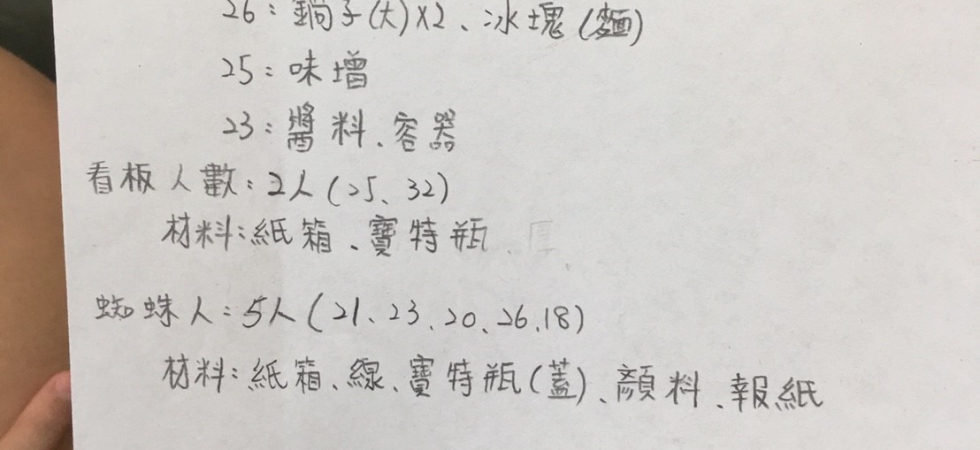 26：鍋子(大)X2、冰塊(麵)
25：味增
23：醬料、容器
看板人數：2人(25、32)
材料：紙箱、寶特瓶
蜘蛛人：5人(21、23、20、26、18)
材料：紙箱、線、寶特瓶(蓋)、顏料、報紙